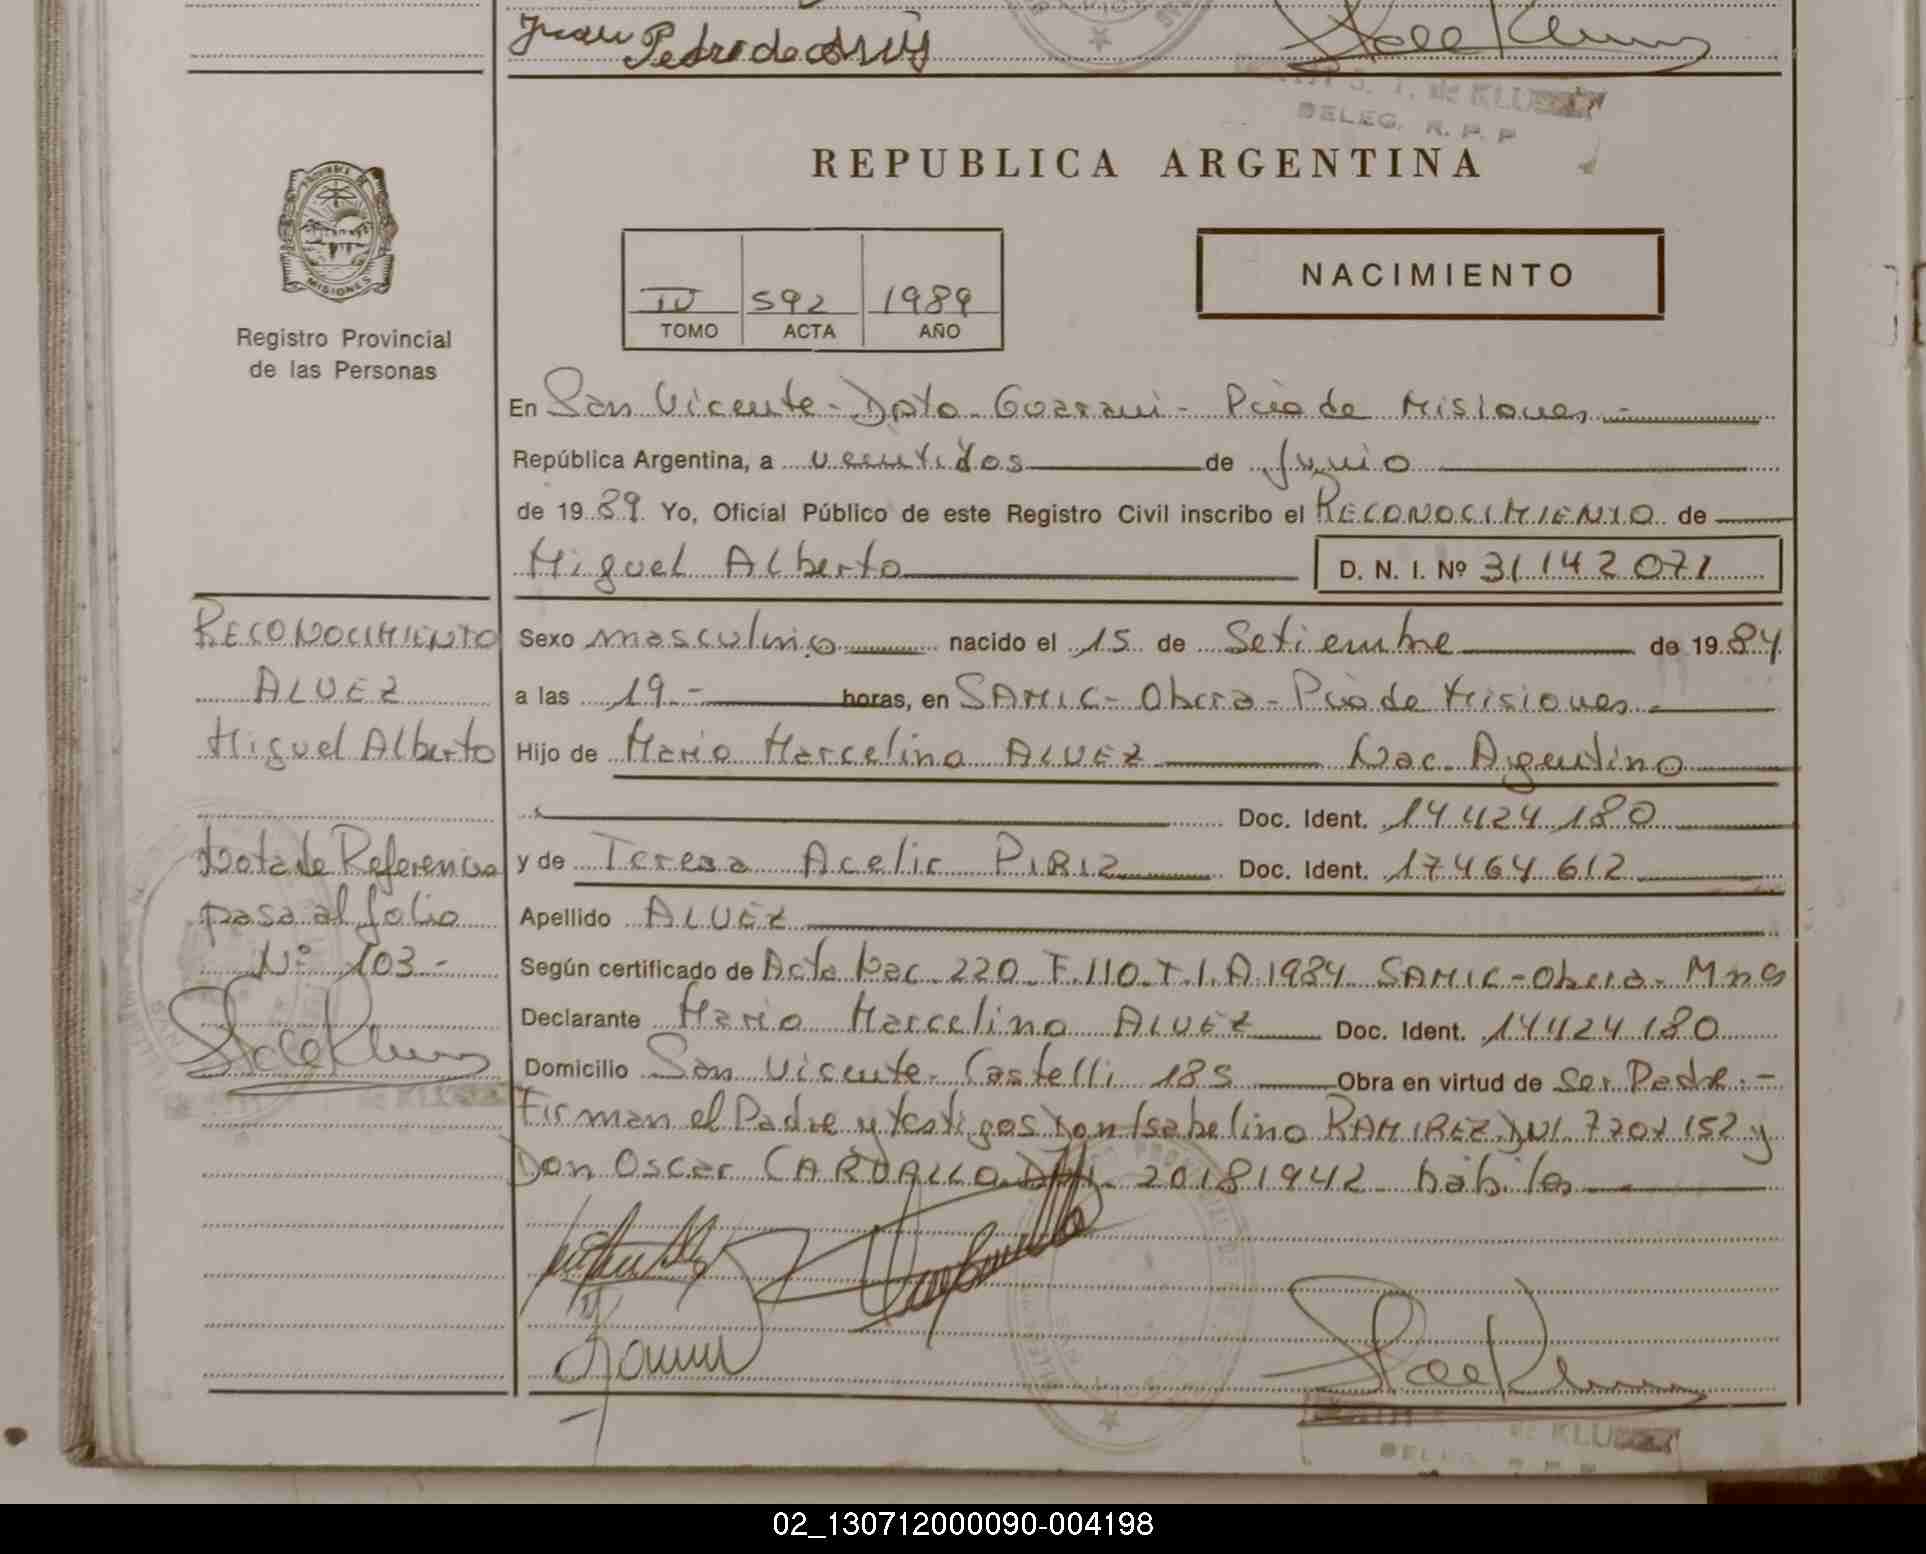 Juan Pedro de
DELEG. R. P. P
REPUBLICA ARGENTINA
PROVINCIA DE
MISIONES
Registro Provincial
de las Personas
IV 592 1989
TOMO ACTA AÑO
NACIMIENTO
En San Vicente - Dpto. Guarani - Pcia de Misiones -
República Argentina, a veintidos de Junio
de 1989. Yo, Oficial Público de este Registro Civil inscribo el RECONOCIMIENTO de
Miguel Alberto D. N. I. Nº 31142071
RECONOCIMIENTO
ALVEZ
Miguel Alberto
Nota de Referencia
pasa al folio
Nº 103 -
Sexo masculino nacido el 15 de Setiembre de 1984
a las 19.- horas, en SAMIC - Obera - Pcia de Misiones.
Hijo de Mario Marcelino ALVEZ Nac. Argentino
Doc. Ident. 14.424.180
y de Teresa Acelia PIRIZ Doc. Ident. 17464612
Apellido ALVEZ
Según certificado de Acta Nac. 220. F.110.T.I.A.1984. SAMIC - Obera - Mnes
Declarante Mario Marcelino ALVEZ Doc. Ident. 14.424.180
Domicilio San Vicente. Castelli 185 Obra en virtud de Ser Padre. -
Firman el Padre y testigos Don Isabelino RAMIREZ DNI. 7.707.152 y
Don Oscar CARVALLO DNI. 20181942 hábiles
de KLU
02_130712000090-004198